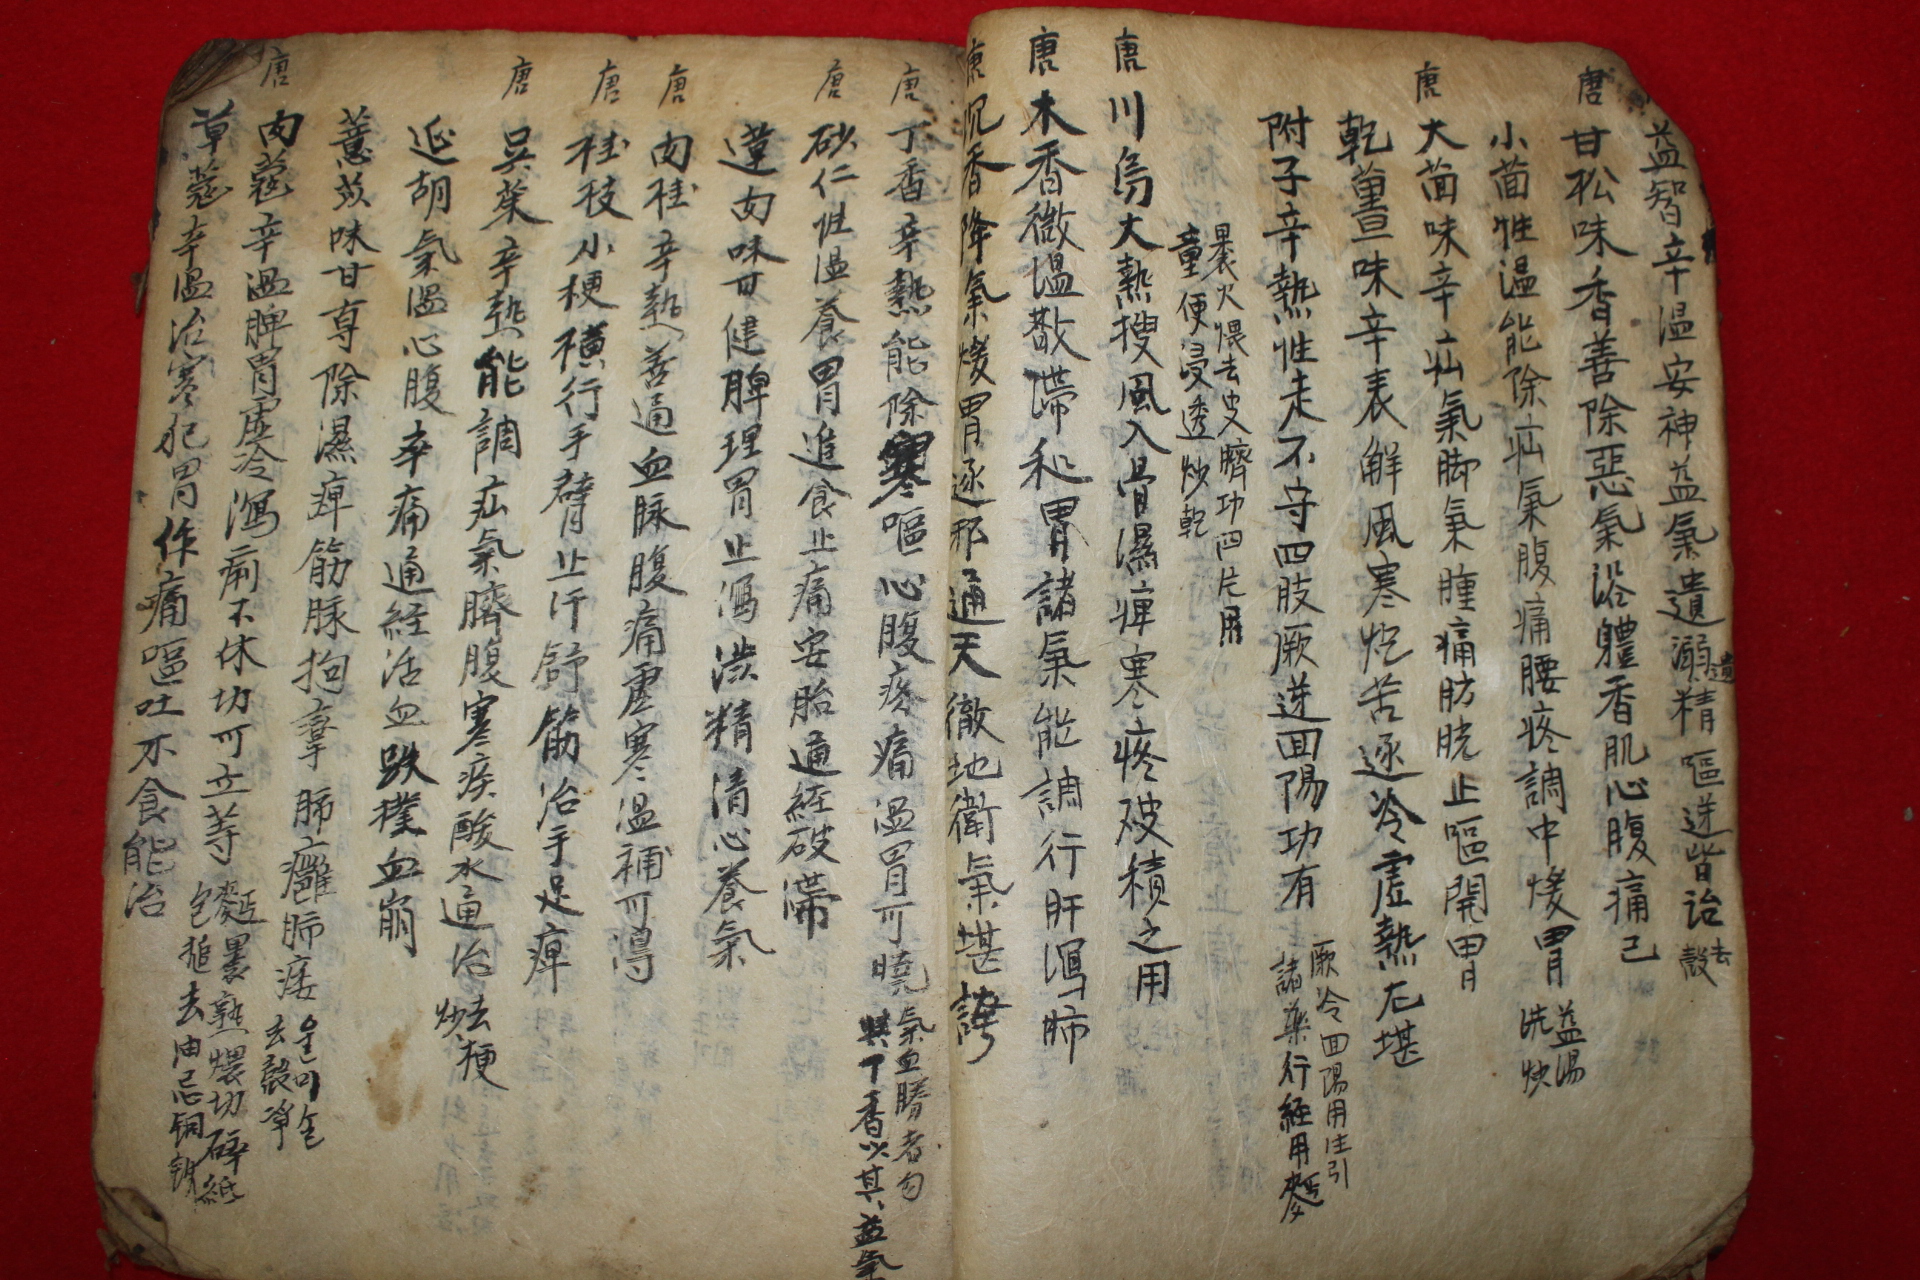 益智辛温安神益氣遺溺遺精嘔逆皆治 去殼
唐 甘松味香善除惡氣浴體香肌心腹痛已
小茴性温能除疝氣腹痛腰疼調中煖胃 益湯
洗炒
唐 大茴味辛疝氣脚氣腫痛肪胱止嘔開胃
乾薑味辛表解風寒炮苦逐冷虛熱尤堪
附子辛熱性走不守四肢厥逆回陽功有 厥冷回陽用生引
諸藥行経用
裹火煨去皮臍切四片用
童便浸透炒乾
唐 川烏大熱搜風入骨濕痺寒疼破積之用
唐 木香微温散滯和胃諸氣能調行肝瀉肺
唐 沉香降氣煖胃逐邪通天徹地衛氣堪誇
唐 丁香辛熱能除寒嘔心腹疼痛温胃可曉 氣血勝者勿
與丁香以其益氣
唐 砂仁性温養胃進食止痛安胎通経破滯
蓮肉味甘健脾理胃止瀉澁精清心養氣
唐 肉桂辛熱善通血脉腹痛虛寒温補可得
唐 桂枝小梗横行手臂止汗舒筋治手足痺
唐 吳茱辛熱能調疝氣臍腹寒疾酸水通治 去梗
炒
延胡氣温心腹卒痛通経活血跌撲血崩
薏苡味甘專除濕痺筋脉拘攣肺癰肺痿
去殼净
唐 肉蔻辛温脾胃虛冷瀉痢不休切可立等 麪裹熟煨切碎紙
包搥去油忌銅
草蔻辛温治寒犯胃作痛嘔吐不食能治